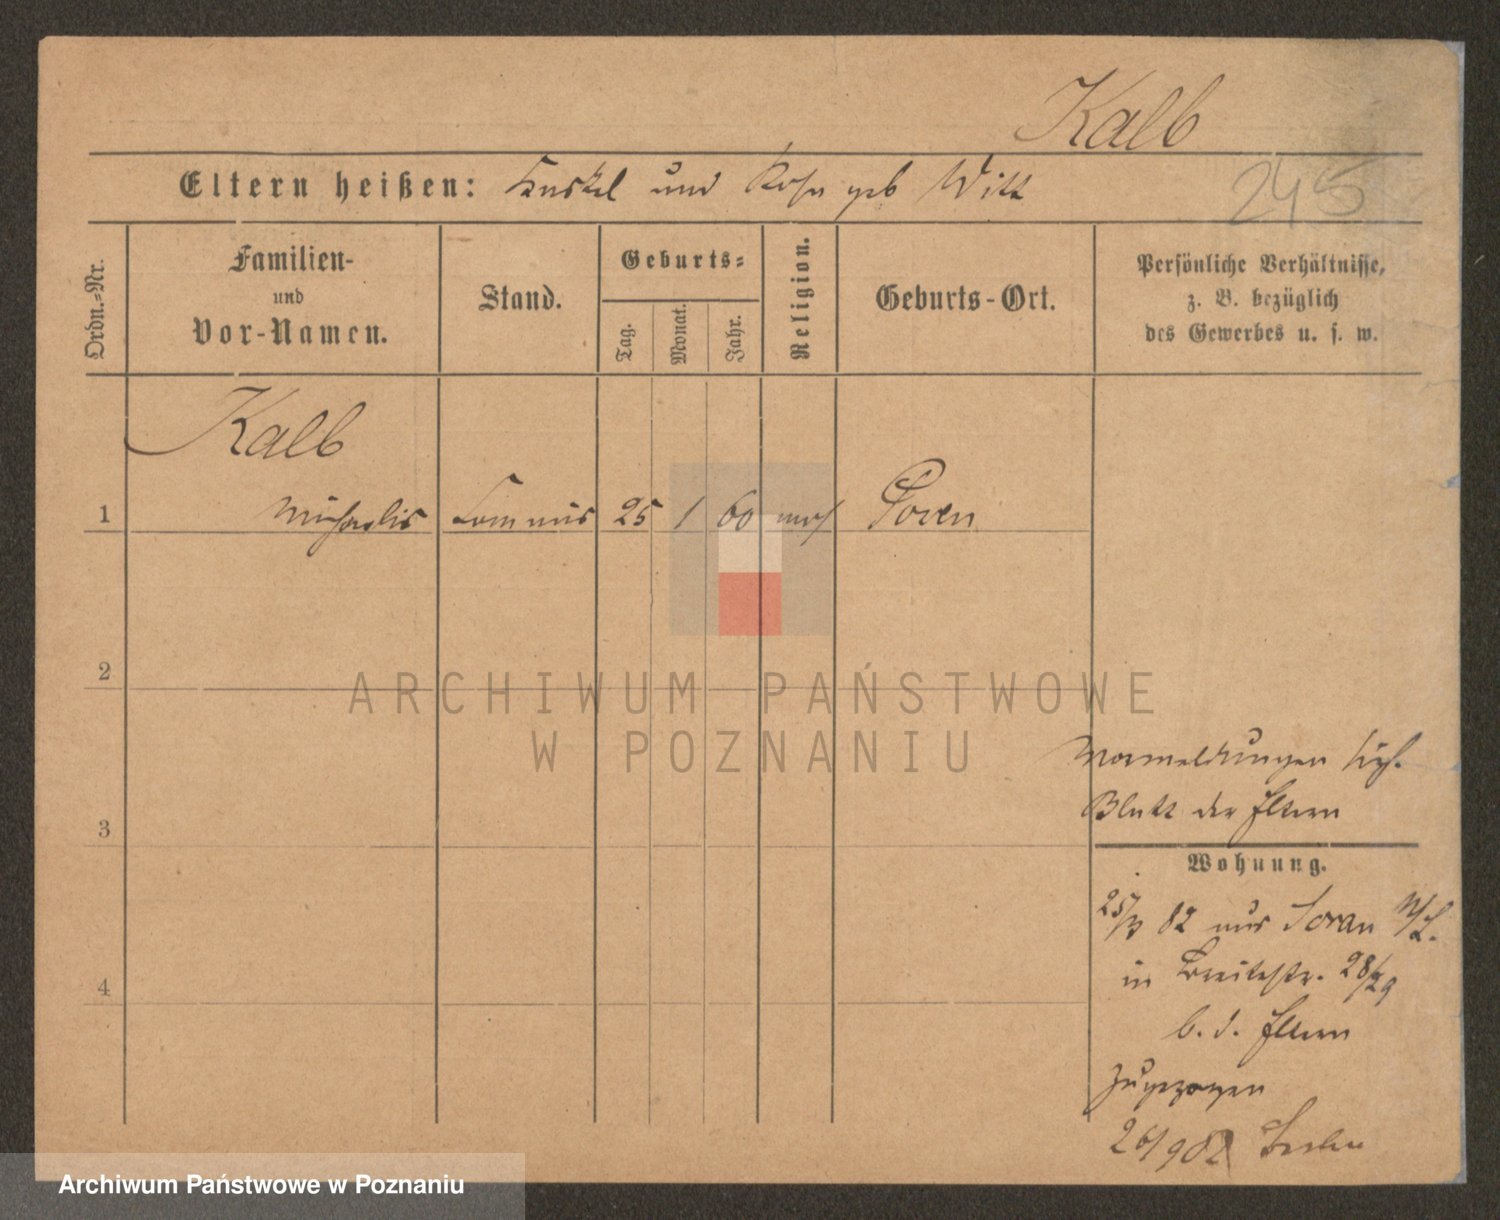 Kalb
245
Eltern heißen: Heuskel und Rosa geb Witt
Ordn.=Nr.
Familien-
und
Vor-Namen.
Stand.
Geburts=
Tag.
Monat.
Jahr.
Religion.
Geburts-Ort.
Persönliche Verhältnisse,
z. B. bezüglich
des Gewerbes u. s. w.
Kalb
1 Michaelis Commis 25 1 60 mos Posen
2
ARCHIWUM PAŃSTWOWE
W POZNANIU
3
4
Vormeldungen siehe
Blatt der Eltern
Wohnung.
25/3 82 aus Soran N/L.
in Breitestr. 28/29
b. d. Eltern
zugezogen
26/9 82 Berlin
Archiwum Państwowe w Poznaniu